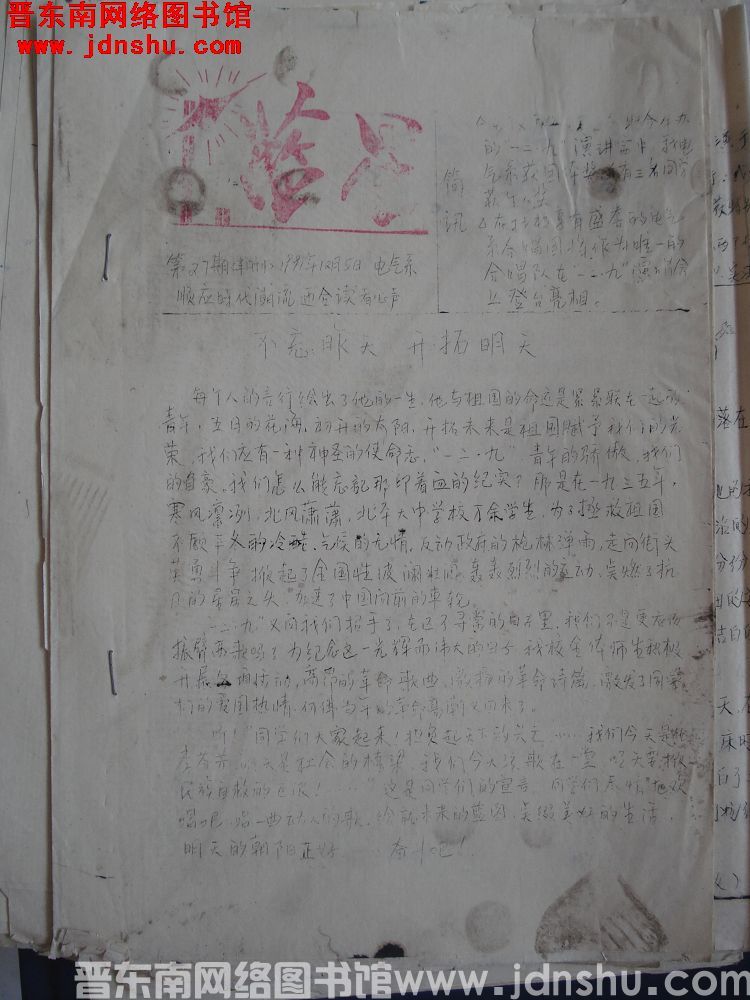 晋东南网络图书馆
www.jdnshu.com
简讯
的"一二·九"演讲会中,我电
气系获团体奖,有三名同学
△在我校享有盛誉的电气
系合唱团将作为唯一的
合唱队在"一二·九"演讲会
上登台亮相。
第27期 1991年12月5日 电气系
顺应时代潮流 迎合读者心声
不忘昨天 开拓明天
每个人的言行绘出了他的一生,他与祖国的命运是紧紧联在一起的
青年,五月的花海,初升的太阳,开拓未来是祖国赋予我们的光
荣,我们应有一种神圣的使命感,"一二·九"青年的骄傲,我们
的自豪,我们怎么能忘记那印着血的纪实?那是在一九三五年,
寒风凛冽,北风萧萧,北平大中学校万余学生,为了拯救祖国
不顾严冬的冷酷,气候的无情,反动政府的枪林弹雨,走向街头
英勇斗争,掀起了全国性波澜壮阔轰轰烈烈的运动,点燃了抗
日的星星之火,推进了中国向前的车轮。
"一二·九"又向我们招手了,在这不寻常的日子里,我们不是更应该
振臂再来吗?为纪念这一光辉而伟大的日子,我校全体师生积极
开展各项活动,高昂的革命歌曲,激扬的革命诗篇,激发了同学
们的爱国热情,仿佛当年的革命高潮又回来了。
听!"同学们大家起来!担负起天下的兴亡……我们今天是桃
李芬芳,明天是社会的栋梁,我们今天弦歌在一堂,明天要掀
民族自救的巨浪!……"这是同学们的宣言,同学们尽情地欢
唱吧,唱一曲动人的歌,绘就未来的蓝图,点缀美好的生活,
明天的朝阳正好……奋斗吧!
晋东南网络图书馆www.jdnshu.com